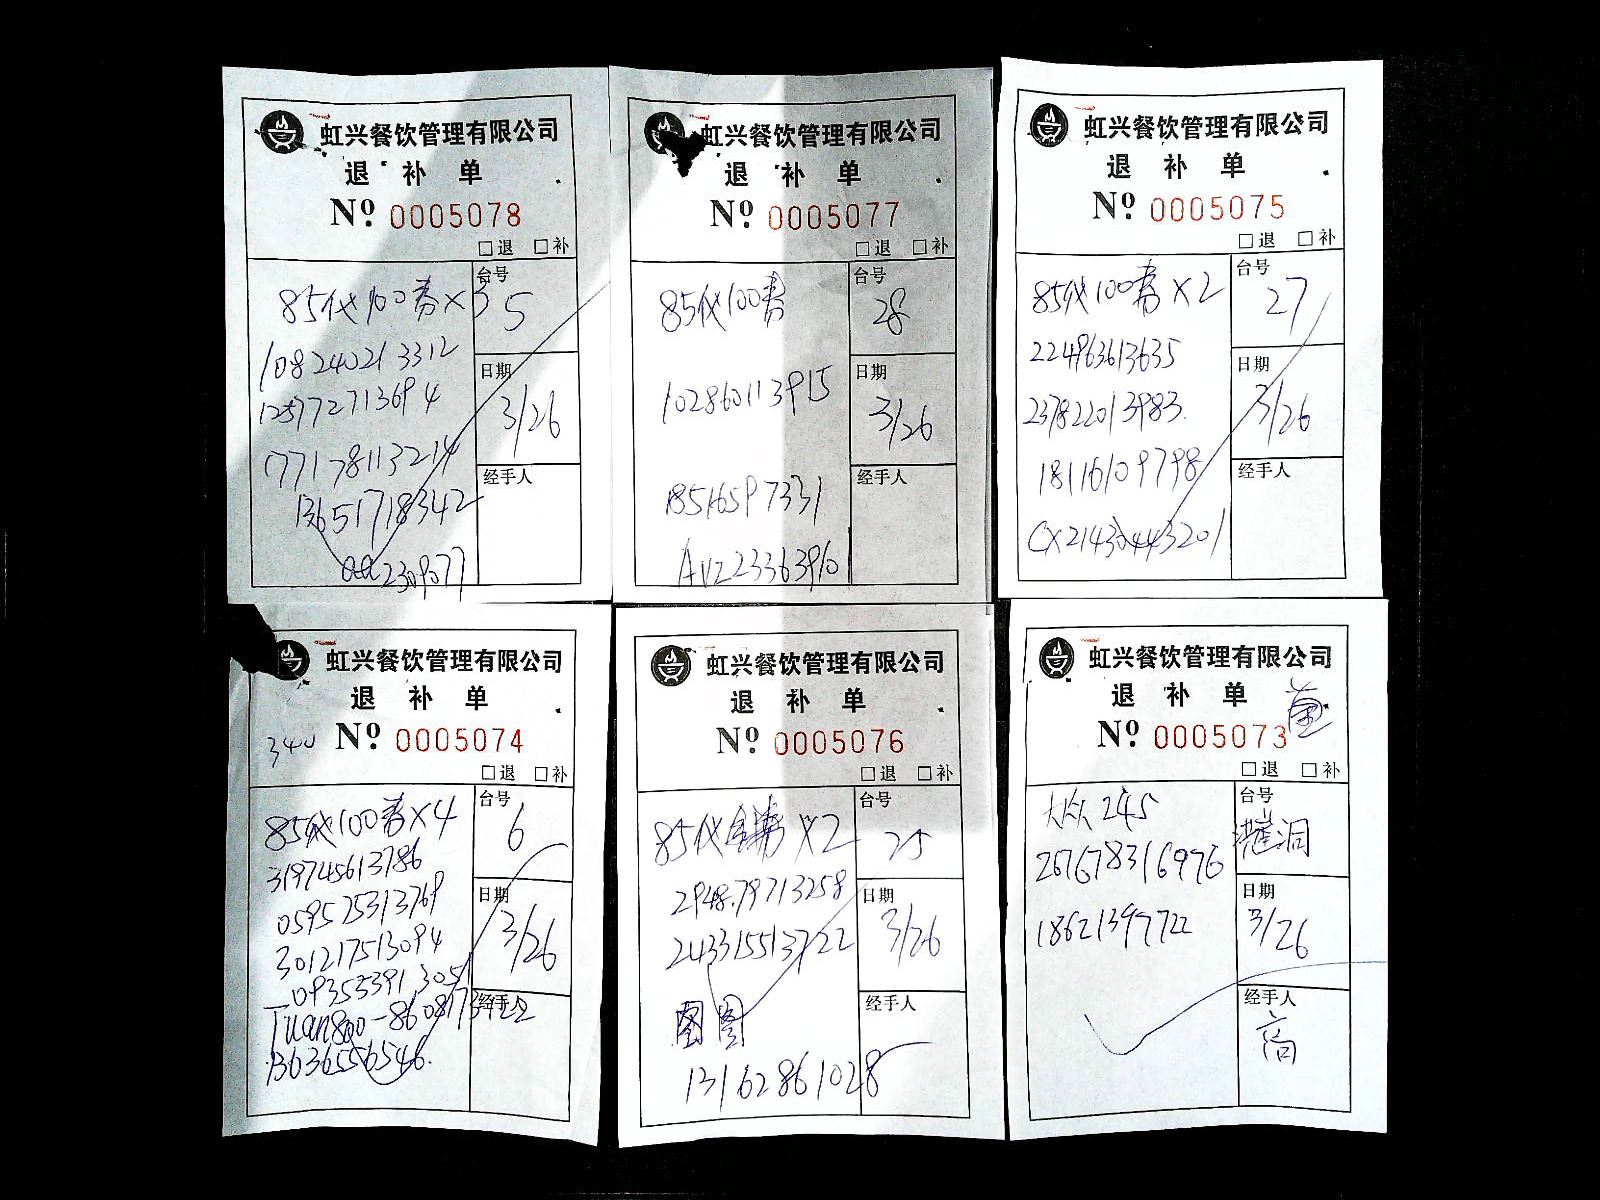 虹兴餐饮管理有限公司
退 补 单
Nº 0005078
□退 □补
85代100券×3
台号
5
108240213312
125772713694
日期
3/26
177178113214
13651718342
经手人
230977
虹兴餐饮管理有限公司
退 补 单
Nº 0005077
□退 □补
85代100券
台号
28
102860113915
日期
3/26
18516597331
经手人
虹兴餐饮管理有限公司
退 补 单
Nº 0005075
□退 □补
85代100券×2
台号
27
224963613635
237822013983
日期
3/26
18116109798
经手人
虹兴餐饮管理有限公司
退 补 单
340 Nº 0005074
□退 □补
85代100券×4
台号
6
319745613786
059525313769
日期
3/26
301217513094
经手人
13636556546
虹兴餐饮管理有限公司
退 补 单
Nº 0005076
□退 □补
85代 ×2
台号
25
294879713258
243315513722
日期
3/26
经手人
13162861028
虹兴餐饮管理有限公司
退 补 单
Nº 0005073
□退 □补
大众 245
台号
267678316976
18621397722
日期
3/26
经手人
高